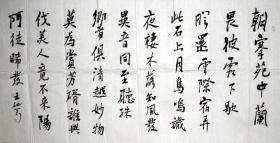 朝搴苑中蘭
畏彼霜下歇
暝還雲際宿弄
此石上月鳥鳴識
夜棲木落知風發
異音同至聽殊
響俱清越妙物
莫為賞芳醑誰與
伐美人竟不來陽
阿徒晞發